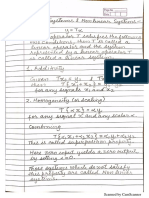 Systems & Nonlinear Systems -
y = Tx
operator T satisfies the following
two conditions, then T is called a
linear operator and the system
represented by a linear operator
is called a linear
1. Additivity
Given Tx₁ = y₁ & Tx₂ = y₂
then T{x₁+x₂} = y₁+y₂
for any signals x₁ and x₂
2. Homogeneity (or Scaling)
T{αx} = αy
for any signal x and any scalar α
Combining
T{α₁x₁ + α₂x₂} = α₁y₁ + α₂y₂
This is called superposition property
Here zero input yields a zero output
by setting α=0
These systems which do not satisfy
property are called Non linear
systems.
Scanned by CamScanner